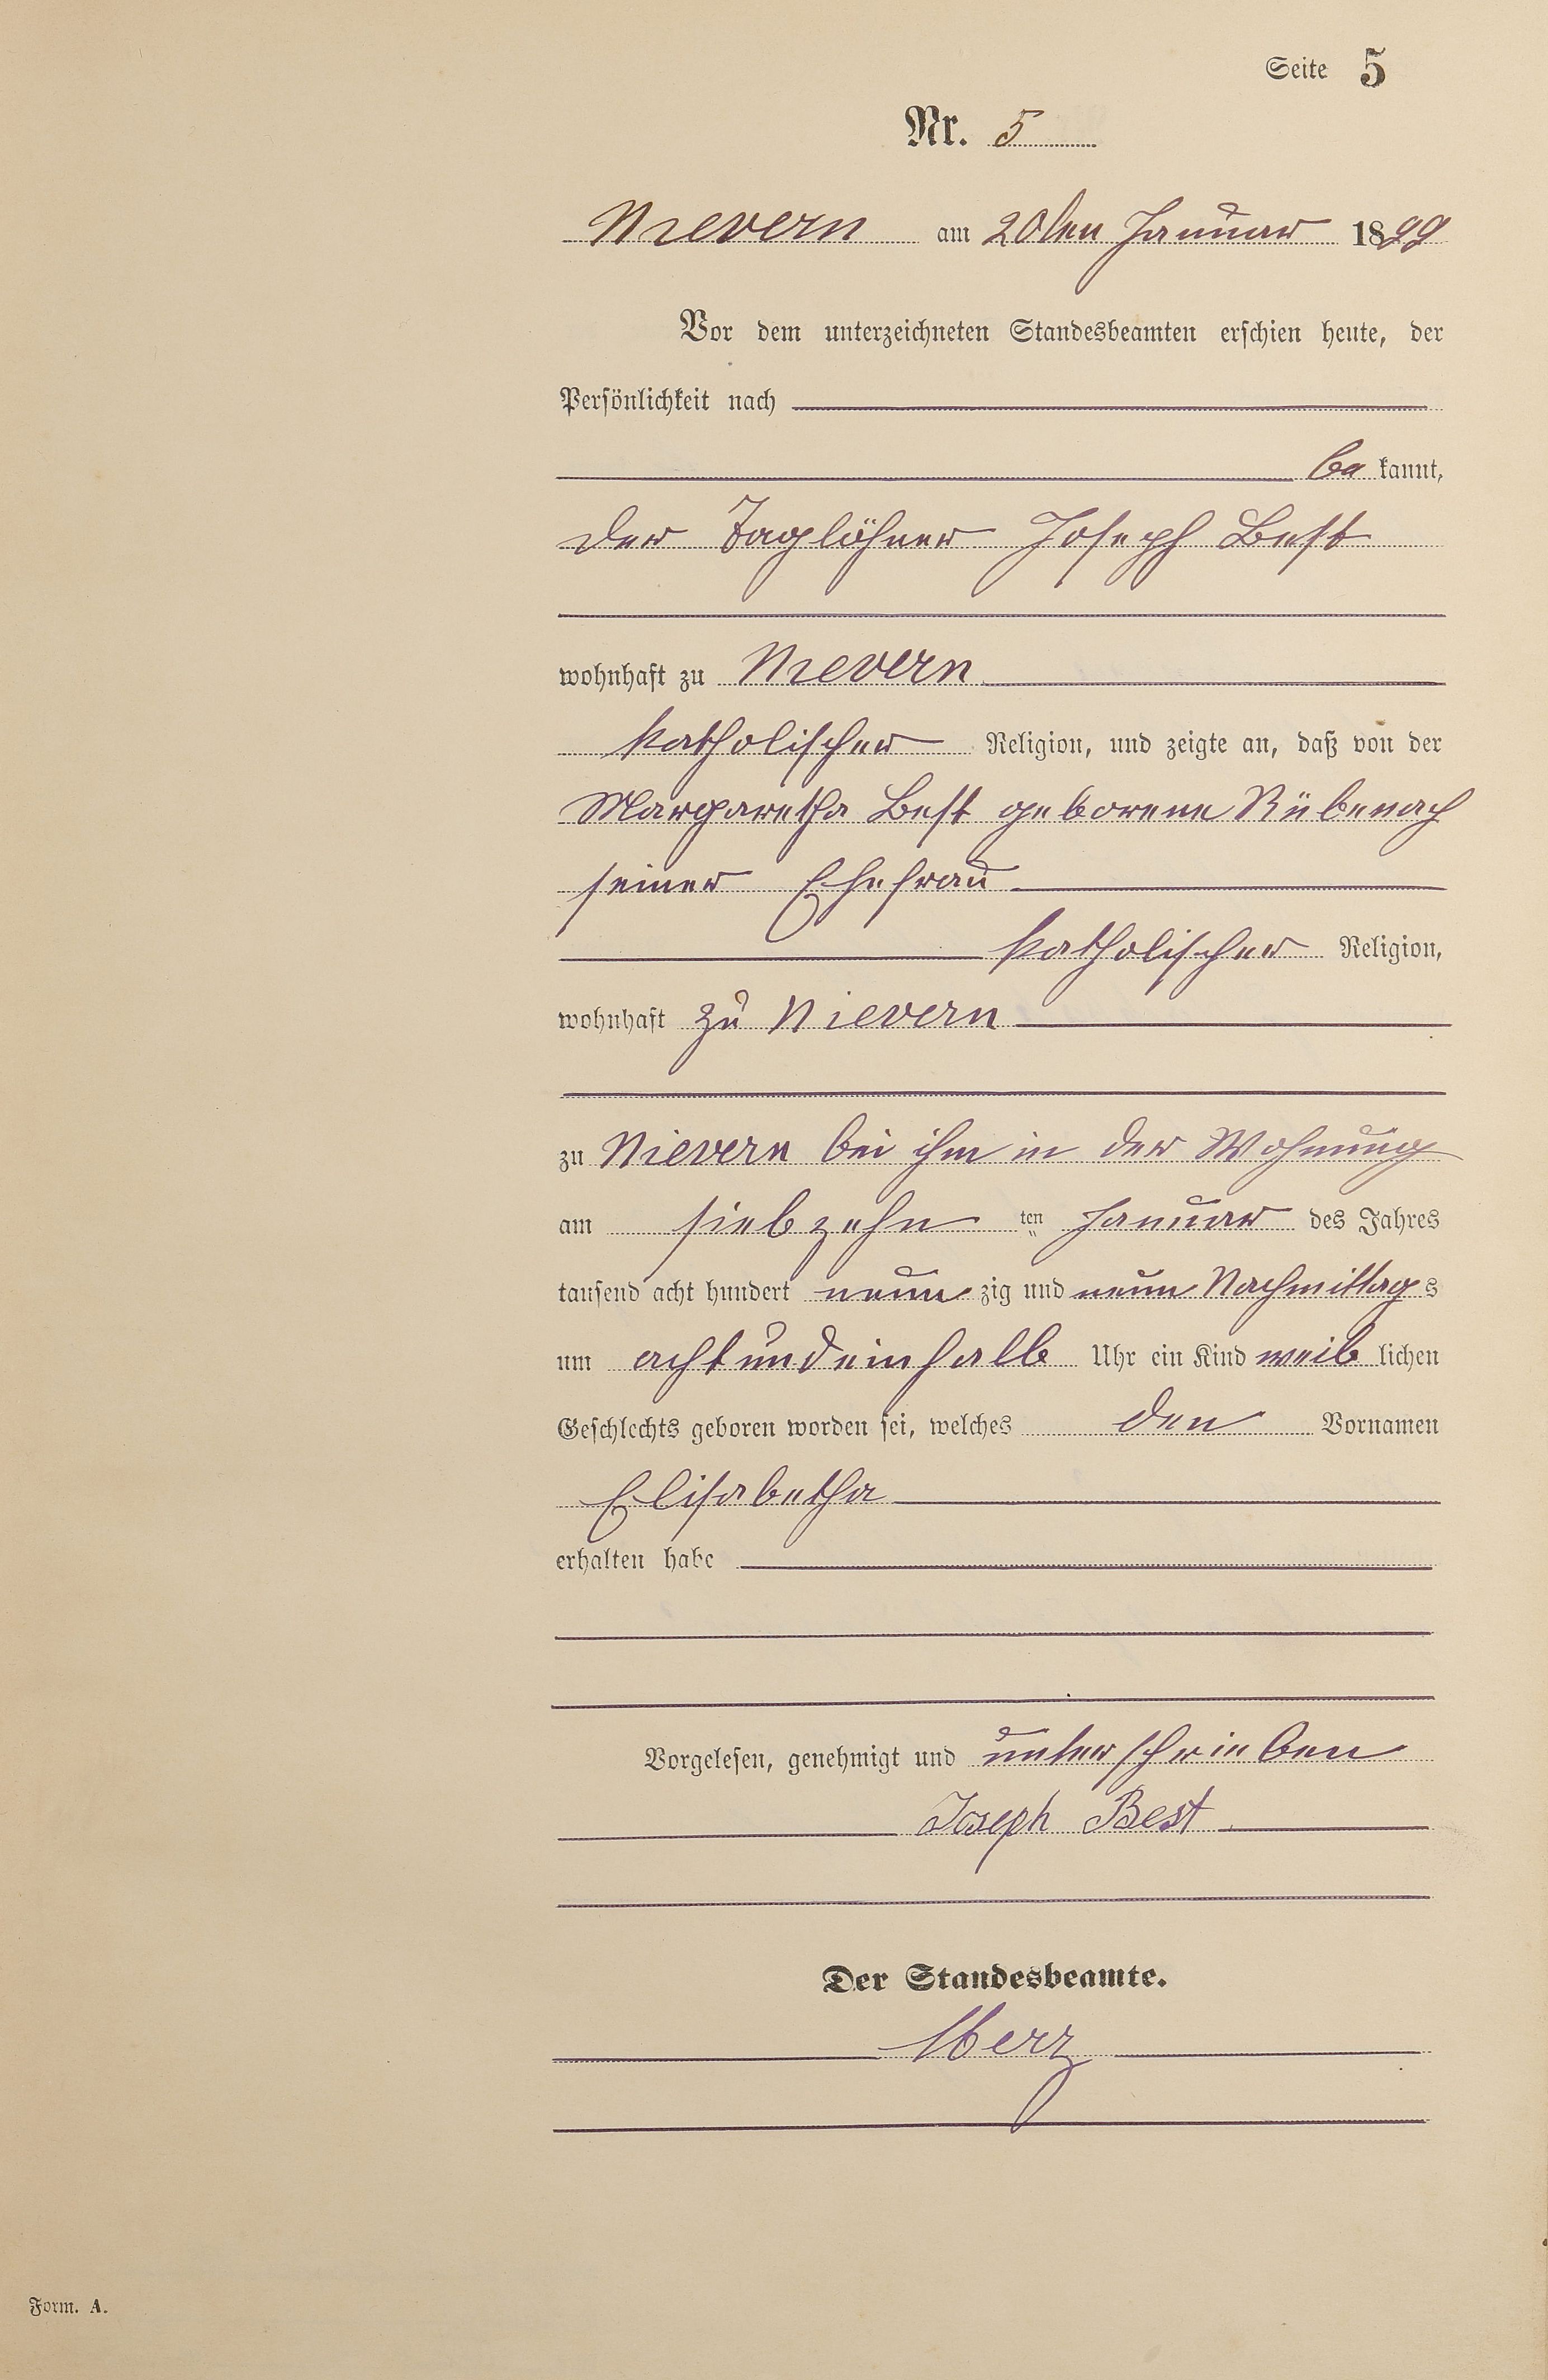 Seite 5
Nr. 5
Nievern am 20ten Januar 1899
Vor dem unterzeichneten Standesbeamten erschien heute, der
Persönlichkeit nach
be kannt,
der Taglöhner Joseph Best
wohnhaft zu Nievern
katholischer Religion, und zeigte an, daß von der
Margaretha Best geborene Rübenach
seiner Ehefrau
katholischer Religion,
wohnhaft zu Nievern
zu Nievern bei ihm in der Wohnung
am siebzehn ten Januar des Jahres
tausend acht hundert neun zig und neun Nachmittag s
um achtundeinhalb Uhr ein Kind weib lichen
Geschlechts geboren worden sei, welches den Vornamen
Elisabetha
erhalten habe
Vorgelesen, genehmigt und unterschrieben
Joseph Best
Der Standesbeamte.
Merz
Form. A.